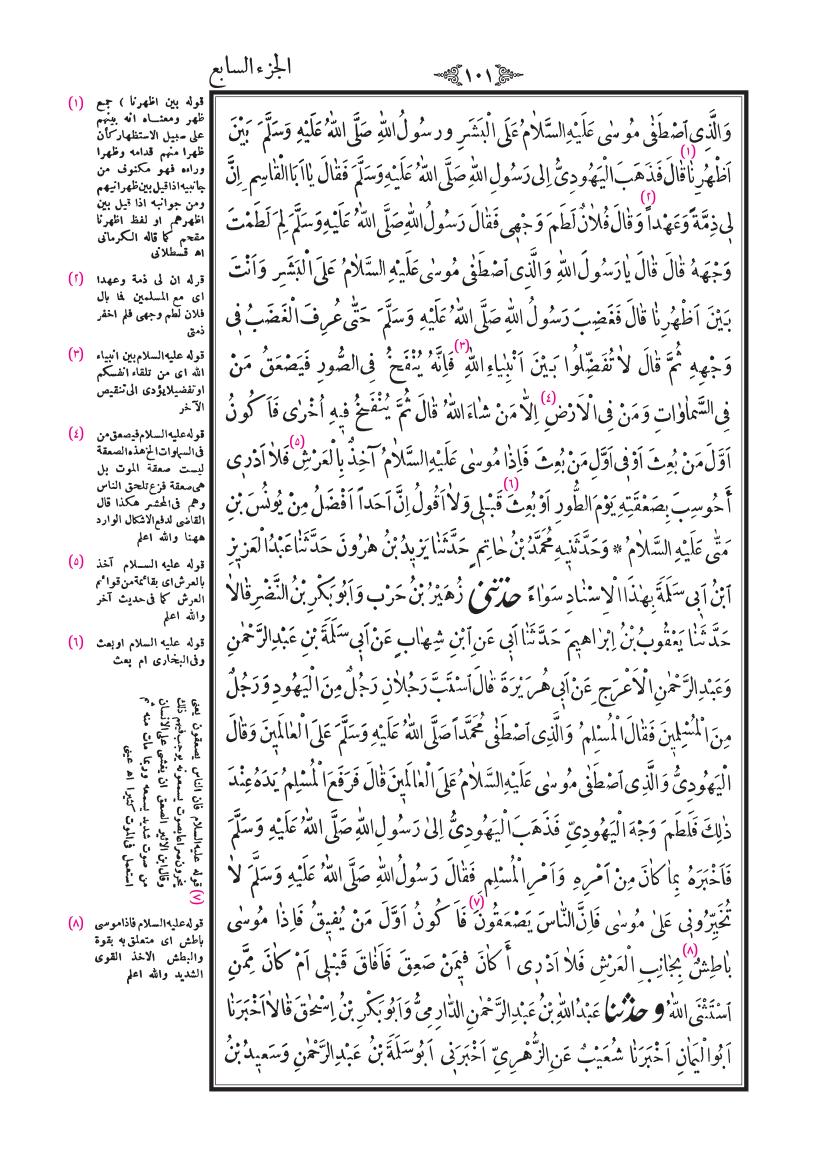 الجزء السابع
١٠١
وَالَّذِي اصْطَفٰى مُوسٰى عَلَيْهِ السَّلَامُ عَلَى الْبَشَرِ وَرَسُولُ اللهِ صَلَّى اللهُ عَلَيْهِ وَسَلَّمَ بَيْنَ
اَظْهُرِنَا (١) قَالَ فَذَهَبَ الْيَهُودِيُّ اِلٰى رَسُولِ اللهِ صَلَّى اللهُ عَلَيْهِ وَسَلَّمَ فَقَالَ يَا اَبَا الْقَاسِمِ اِنَّ
لِي ذِمَّةً وَعَهْداً (٢) وَقَالَ فُلَانٌ لَطَمَ وَجْهِي فَقَالَ رَسُولُ اللهِ صَلَّى اللهُ عَلَيْهِ وَسَلَّمَ لِمَ لَطَمْتَ
وَجْهَهُ قَالَ قَالَ يَا رَسُولَ اللهِ وَالَّذِي اصْطَفٰى مُوسٰى عَلَيْهِ السَّلَامُ عَلَى الْبَشَرِ وَاَنْتَ
بَيْنَ اَظْهُرِنَا قَالَ فَغَضِبَ رَسُولُ اللهِ صَلَّى اللهُ عَلَيْهِ وَسَلَّمَ حَتّٰى عُرِفَ الْغَضَبُ فِي
وَجْهِهِ ثُمَّ قَالَ لَا تُفَضِّلُوا بَيْنَ اَنْبِيَاءِ اللهِ (٣) فَاِنَّهُ يُنْفَخُ فِي الصُّورِ فَيَصْعَقُ مَنْ
فِي السَّمَاوَاتِ وَمَنْ فِي الْاَرْضِ (٤) اِلَّا مَنْ شَاءَ اللهُ قَالَ ثُمَّ يُنْفَخُ فِيهِ اُخْرٰى فَاَكُونُ
اَوَّلَ مَنْ بُعِثَ اَوْ فِي اَوَّلِ مَنْ بُعِثَ فَاِذَا مُوسٰى عَلَيْهِ السَّلَامُ آخِذٌ بِالْعَرْشِ (٥) فَلَا اَدْرِي
أَحُوسِبَ بِصَعْقَتِهِ يَوْمَ الطُّورِ اَوْ بُعِثَ (٦) قَبْلِي وَلَا اَقُولُ اِنَّ اَحَداً اَفْضَلُ مِنْ يُونُسَ بْنِ
مَتّٰى عَلَيْهِ السَّلَامُ * وَحَدَّثَنِيهِ مُحَمَّدُ بْنُ حَاتِمٍ حَدَّثَنَا يَزِيدُ بْنُ هٰرُونَ حَدَّثَنَا عَبْدُ الْعَزِيزِ
ابْنُ اَبِي سَلَمَةَ بِهٰذَا الْاِسْنَادِ سَوَاءً حَدَّثَنِي زُهَيْرُ بْنُ حَرْبٍ وَاَبُو بَكْرِ بْنُ النَّضْرِ قَالَا
حَدَّثَنَا يَعْقُوبُ بْنُ اِبْرَاهِيمَ حَدَّثَنَا اَبِي عَنِ ابْنِ شِهَابٍ عَنْ اَبِي سَلَمَةَ بْنِ عَبْدِ الرَّحْمٰنِ
وَعَبْدِ الرَّحْمٰنِ الْاَعْرَجِ عَنْ اَبِي هُرَيْرَةَ قَالَ اسْتَبَّ رَجُلَانِ رَجُلٌ مِنَ الْيَهُودِ وَرَجُلٌ
مِنَ الْمُسْلِمِينَ فَقَالَ الْمُسْلِمُ وَالَّذِي اصْطَفٰى مُحَمَّداً صَلَّى اللهُ عَلَيْهِ وَسَلَّمَ عَلَى الْعَالَمِينَ وَقَالَ
الْيَهُودِيُّ وَالَّذِي اصْطَفٰى مُوسٰى عَلَيْهِ السَّلَامُ عَلَى الْعَالَمِينَ قَالَ فَرَفَعَ الْمُسْلِمُ يَدَهُ عِنْدَ
ذٰلِكَ فَلَطَمَ وَجْهَ الْيَهُودِيِّ فَذَهَبَ الْيَهُودِيُّ اِلٰى رَسُولِ اللهِ صَلَّى اللهُ عَلَيْهِ وَسَلَّمَ
فَاَخْبَرَهُ بِمَا كَانَ مِنْ اَمْرِهِ وَاَمْرِ الْمُسْلِمِ فَقَالَ رَسُولُ اللهِ صَلَّى اللهُ عَلَيْهِ وَسَلَّمَ لَا
تُخَيِّرُونِي عَلٰى مُوسٰى فَاِنَّ النَّاسَ يَصْعَقُونَ (٧) فَاَكُونُ اَوَّلَ مَنْ يُفِيقُ فَاِذَا مُوسٰى
بَاطِشٌ (٨) بِجَانِبِ الْعَرْشِ فَلَا اَدْرِي أَكَانَ فِيمَنْ صَعِقَ فَاَفَاقَ قَبْلِي اَمْ كَانَ مِمَّنِ
اسْتَثْنَى اللهُ وَحَدَّثَنَا عَبْدُ اللهِ بْنُ عَبْدِ الرَّحْمٰنِ الدَّارِمِيُّ وَاَبُو بَكْرِ بْنُ اِسْحٰقَ قَالَا اَخْبَرَنَا
اَبُو الْيَمَانِ اَخْبَرَنَا شُعَيْبٌ عَنِ الزُّهْرِيِّ اَخْبَرَنِي اَبُو سَلَمَةَ بْنُ عَبْدِ الرَّحْمٰنِ وَسَعِيدُ بْنُ
(١) قوله بين اظهرنا ) جمع
ظهر ومعناه انه بينهم
على سبيل الاستظهار كأن
ظهرا منهم قدامه وظهرا
وراءه فهو مكنوف من
جانبيه اذا قيل بين ظهرانيهم
ومن جوانبه اذا قيل بين
اظهرهم او لفظ اظهرنا
مقحم كما قاله الكرمانى
اه قسطلانى
(٢) قوله ان لى ذمة وعهدا
اى مع المسلمين فما بال
فلان لطم وجهى فلم اخفر
ذمتى
(٣) قوله عليه السلام بين انبياء
الله اى من تلقاء انفسكم
او تفضيلا يؤدى الى تنقيص
الآخر
(٤) قوله عليه السلام فيصعق من
فى السماوات الخ هذه الصعقة
ليست صعقة الموت بل
هى صعقة فزع تلحق الناس
وهم فى المحشر هكذا قال
القاضى لدفع الاشكال الوارد
ههنا والله اعلم
(٥) قوله عليه السلام آخذ
بالعرش اى بقائمة من قوائم
العرش كما فى حديث آخر
والله اعلم
(٦) قوله عليه السلام اوبعث
وفى البخارى ام بعث
(٧) قوله عليه السلام فان الناس يصعقون يعنى
يخرون صراعا بصوت يسمعونه يوجب فيهم ذلك
وقال ابن الاثير الصعق ان يغشى على الانسان
من صوت شديد يسمعه وربما مات منه ثم
استعمل فى الموت كثيرا اه عينى
(٨) قوله عليه السلام فاذا موسى
باطش اى متعلق به بقوة
والبطش الاخذ القوى
الشديد والله اعلم